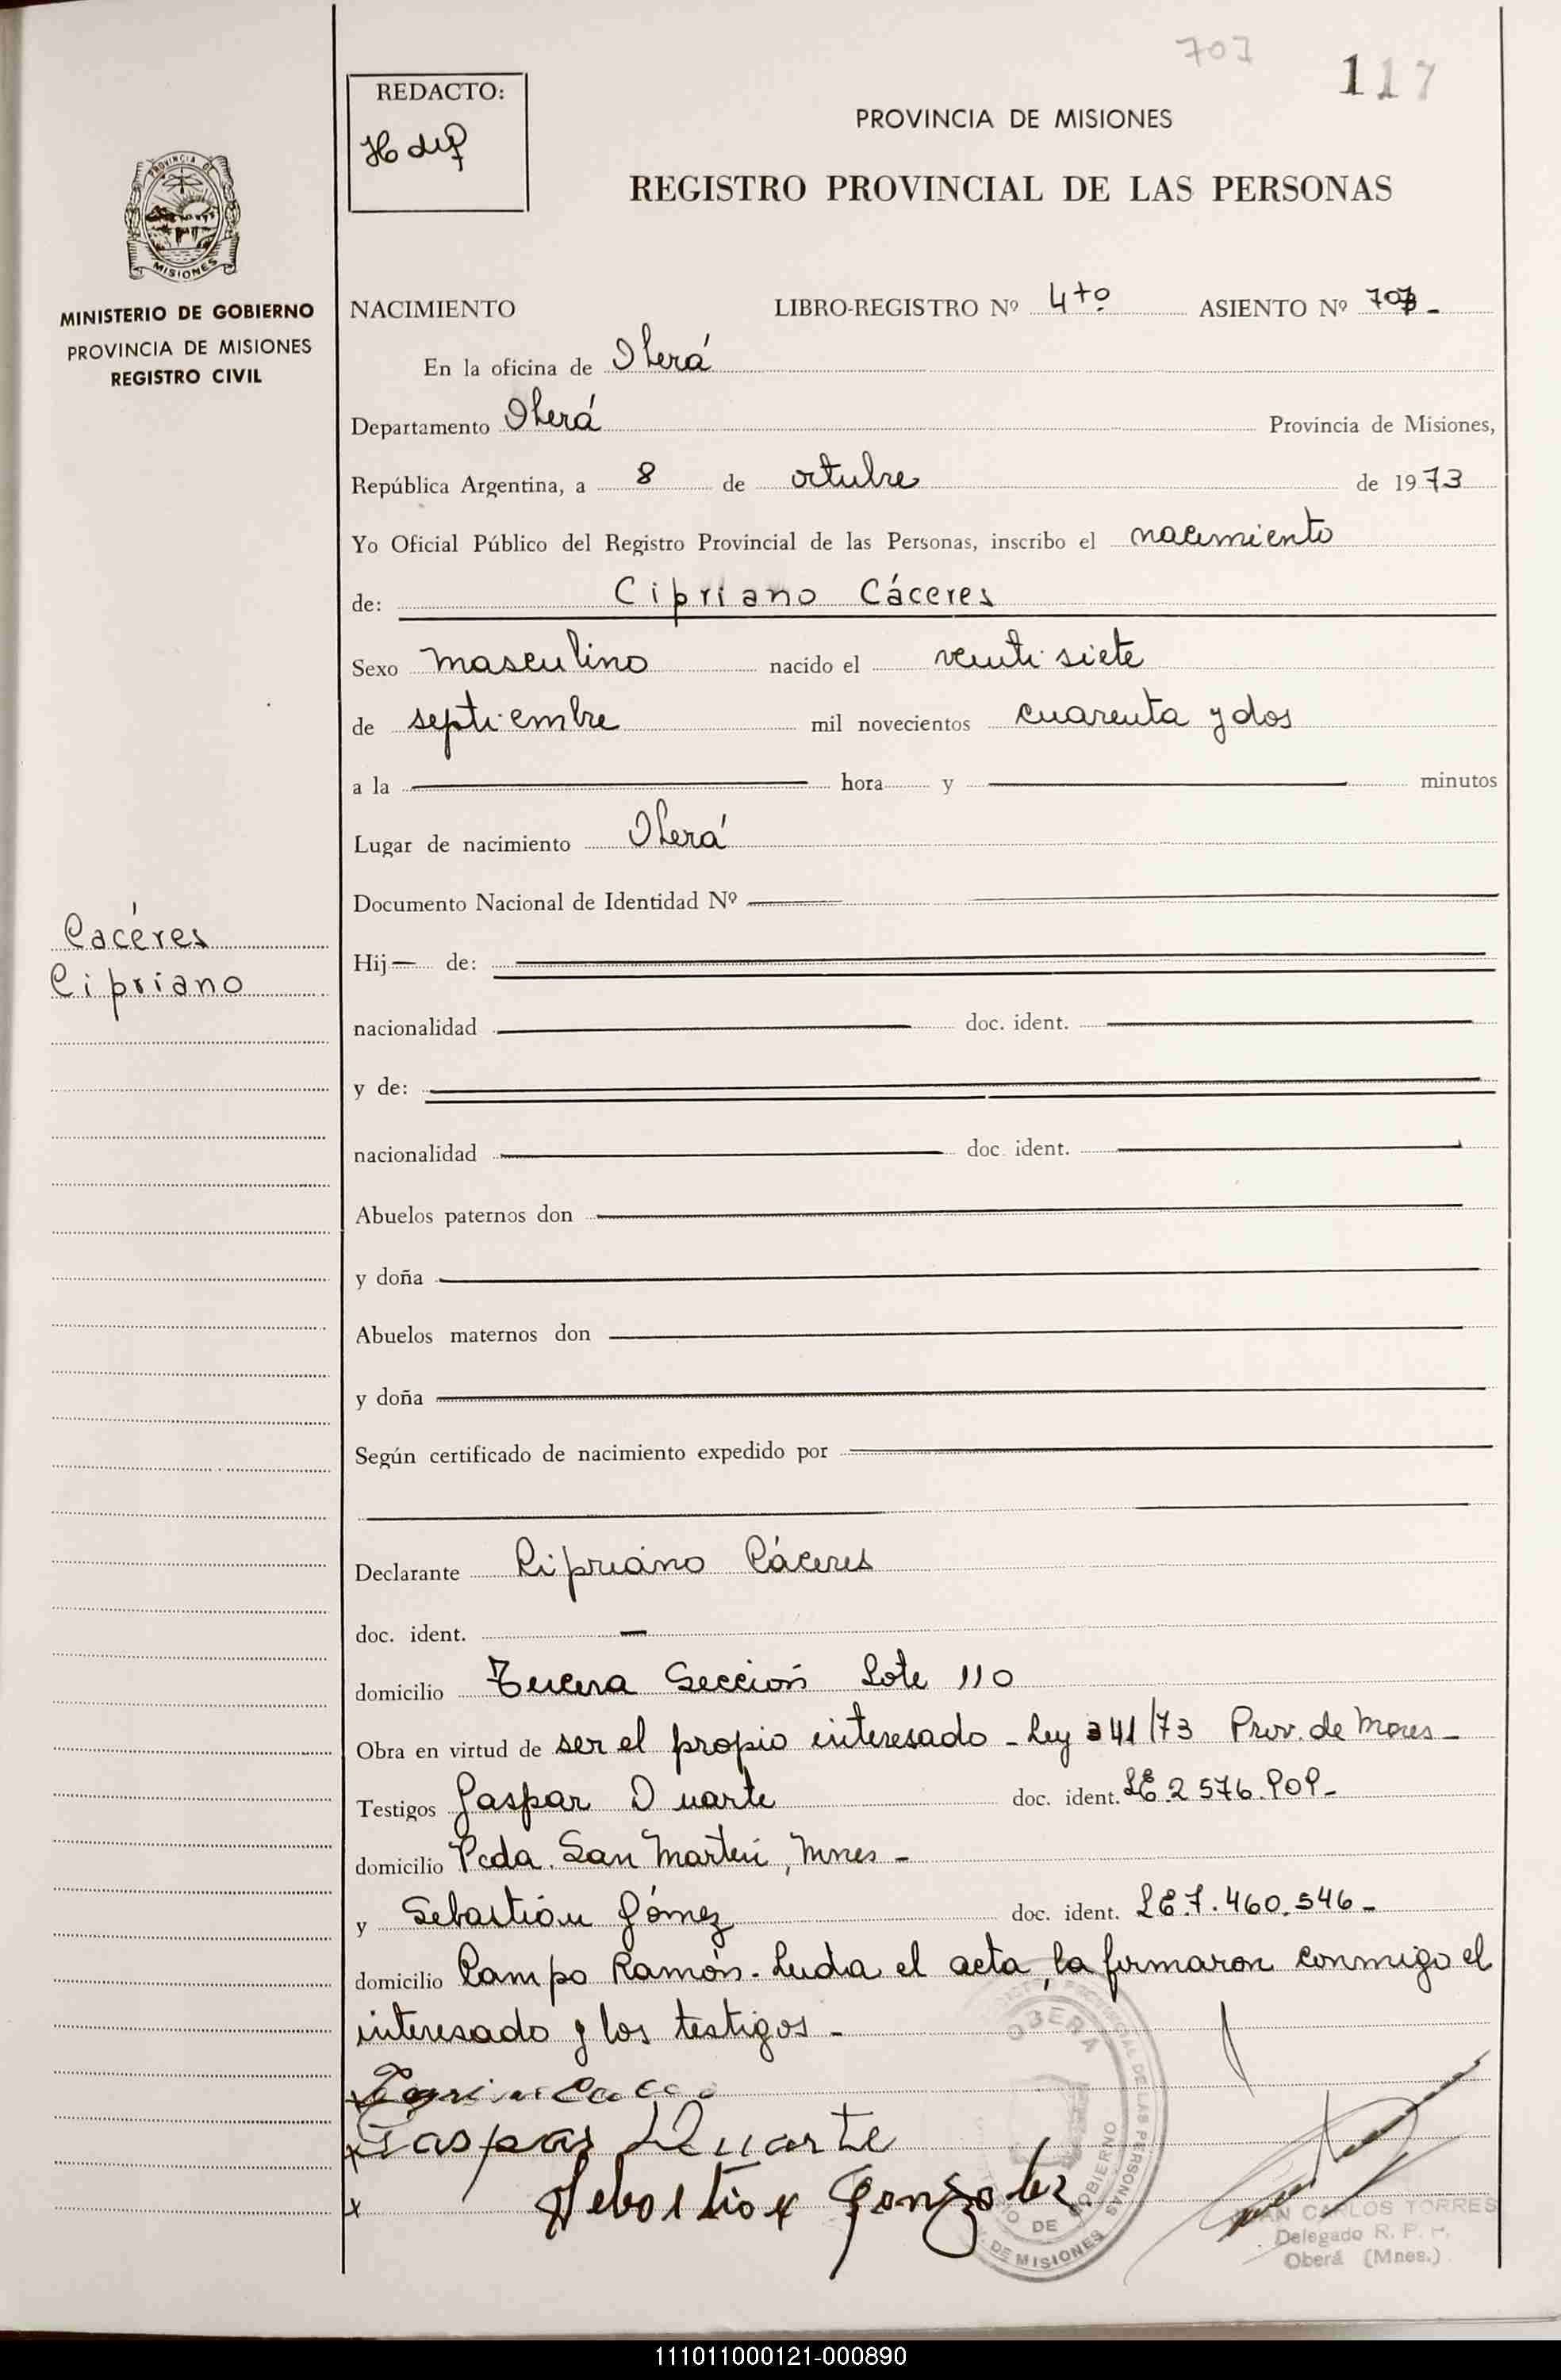 707
117
REDACTO:
PROVINCIA DE MISIONES
REGISTRO PROVINCIAL DE LAS PERSONAS
PROVINCIA DE
MISIONES
MINISTERIO DE GOBIERNO
PROVINCIA DE MISIONES
REGISTRO CIVIL
NACIMIENTO LIBRO-REGISTRO Nº 4to ASIENTO Nº 707 -
En la oficina de Oberá
Departamento Oberá Provincia de Misiones,
República Argentina, a 8 de octubre de 1973
Yo Oficial Público del Registro Provincial de las Personas, inscribo el nacimiento
de: Cipriano Cáceres
Sexo masculino nacido el veinti siete
de septiembre mil novecientos cuarenta y dos
a la hora y minutos
Lugar de nacimiento Oberá
Documento Nacional de Identidad Nº
Cacéres
Cipriano
Hij— de:
nacionalidad doc. ident.
y de:
nacionalidad doc. ident.
Abuelos paternos don
y doña
Abuelos maternos don
y doña
Según certificado de nacimiento expedido por
Declarante Cipriano Cáceres
doc. ident. —
domicilio Tercera Sección Lote 110
Obra en virtud de ser el propio interesado - Ley 341/73 Prov. de Mnes -
Testigos Gaspar Duarte doc. ident. LE. 2 576.909-
domicilio Pcda. San Martín, Mnes -
y Sebastián Gómez doc. ident. LE 7.460.546 -
domicilio Campo Ramón. Leída el acta, la firmaron conmigo el
interesado y los testigos -
x
x Gaspar Duarte
x Sebastian Gonzalez
OBERA
PROVINCIAL DE LAS PERSONAS
DE GOBIERNO
DE MISIONES
JUAN CARLOS TORRES
Delegado R. P. P.
Oberá (Mnes.)
111011000121-000890